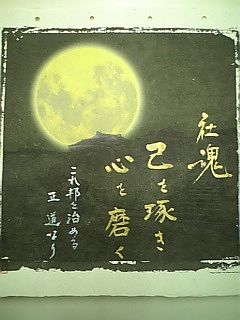 社魂
己を琢き
心を磨く
これ邦を治める
正道なり